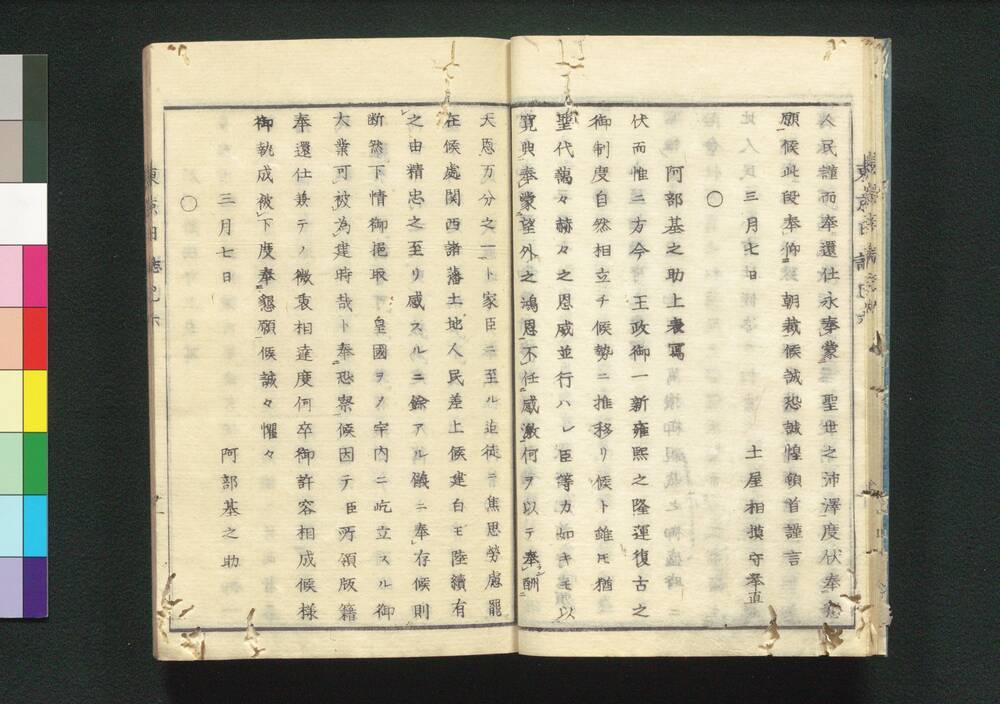 人民謹而奉還仕永奉蒙　聖世之沛澤度伏奉懇
願候此段奉仰　朝裁候誠恐誠惶頓首謹言
三月七日　土屋相摸守挙直
〇
阿部基之助上表寫
伏而惟ニ方今　王政御一新雍熙之隆運復古之
御制度自然相立チ候勢ニ推移リ候ト雖モ猶
聖代蕩々赫々之恩威並行ハレ臣等カ如キモ以
寛典奉蒙望外之鴻恩不任感激何ヲ以テ奉酬
天恩万分之一ト家臣ニ至ル迄徒ニ焦思勞慮罷
在候處関西諸藩土地人民差上候建白モ陸續有
之由精忠之至リ感スルニ餘アル儀ニ奉存候則
断然下情御挹取　皇國ヲノ宇内ニ屹立スル御
大業可被為建時哉ト奉恐察候因テ臣所領版籍
奉還仕兼テノ微衷相達度何卒御許容相成候様
御執成被下度奉懇願候誠々懼々
三月七日　阿部基之助
〇
東京日誌